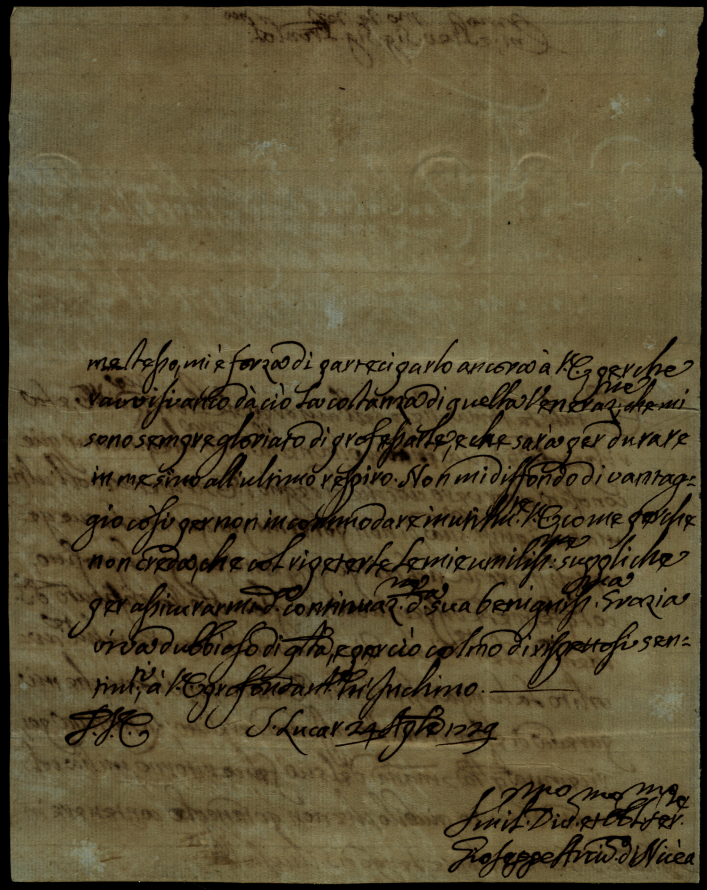 me stesso, mi è forza di parteciparlo ancora à V. E. perche
ravvisi anco dà ciò la costanza di quella Veneraz.ne che mi
sono sempre gloriato di professarle, e che sarà per durare
in me sino all'ultimo respiro. Non mi diffondo di vantag=
gio così per non incommodare inutilm.te V. E. come perche
non credo, che col ripeterle le mie umiliss.me suppliche
per assicurarmi d. continuaz.ne d. sua benigniss.ma Grazia
viva dubbioso di q.sta, e perciò colmo di rispettosi sen=
tim.ti, à V. E. profondam.te m'Inchino.
D. V. E. S. Lucar 24 Ag.to 1729
Um.mo Div.mo et Obl.mo Ser.re
Gioseppe Arciv.o di Nicea